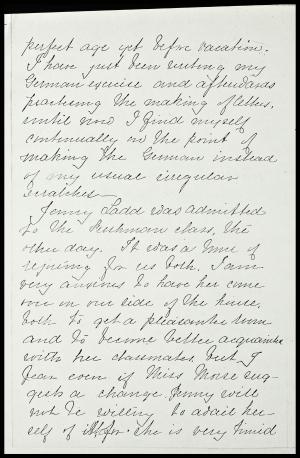 perfect age yet before vacation.
I have just been writing my
German exercise and afterwards
practising the making of letters,
until now I find myself
continually on the point of
making the German instead
of my usual irregular
scratches—
Jenny Ladd was admitted
to the Freshman class, the
other day. It was a time of
rejoicing for us both. I am
very anxious to have her come
over on our side of the house,
both to get a pleasanter room
and to become better acquainted
with her classmates. but I
fear even if Miss Morse sug-
gests a change Jenny will
not be willing to avail her-
self of it, for she is very timid